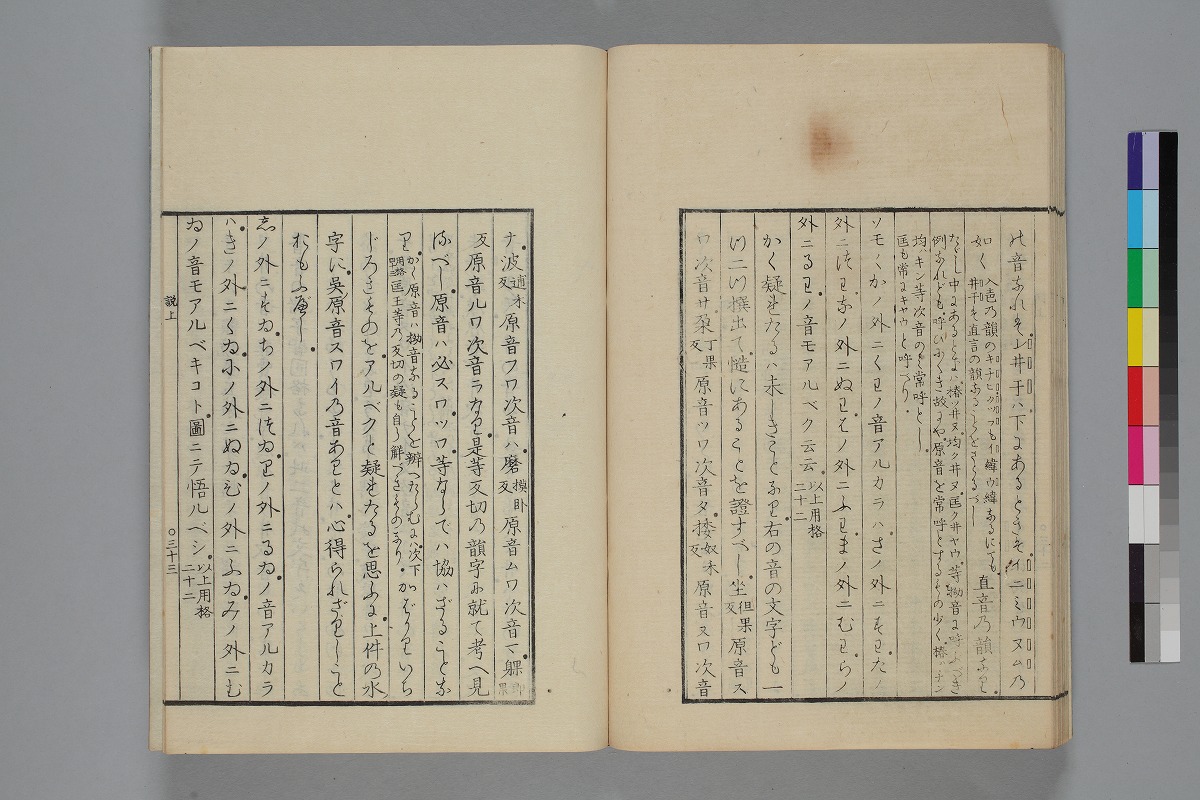 の音なれバ上井于ハ下にあるときハイニミウヌムの
如く入色乃韻のキチヒクツフもイ緯ウ緯なるにても
井于を直言の韻なることをさとるべし直音乃韻なり
たゞし中にあるときハ椿ツ井ヌ均ク井ヌ匡ク井ヤウ等拗音に呼ぶべき
例なれども呼びにくき故にや原音を常呼とするもの少く椿ハチン
均ハキン等次音のミを常呼とし
匡も常にキヤウと呼べり
ソモくかノ外ニくわノ音アルカラハさノ外ニすわたノ
外ニつわなノ外ニぬわはノ外ニふわまノ外ニむわらノ
外ニるわノ音モアルベク云云以上用格二十二
かく疑はれたるハ未しきことなり右の音の文字ども一
ツ二ツ撰出て慥にあることを證すべし坐但果反原音ス
ワ次音サ朶丁果反原音ツワ次音タ捼奴禾反原音ヌワ次音
ナ波逋禾反原音フワ次音ハ磨摸卧反原音ムワ次音マ躶郎果
反原音ルワ次音ラなり是等反切乃韻字に就て考へ見
るべし原音ハ必スワツワ等ならでハ協ハざることな
りかく原音ハ拗音なることを辨へたらむにハ次下
用格 匡王等乃反切の疑も自ら解べきものなりかばかりいち
じろきものをアルベクと疑はれたるを思ふに上件の水
字に吳原音スワイ乃音ありとハ心得られざりしこと
おもふべし
志ノ外ニすゐちノ外ニつゐりノ外ニるゐノ音アルカラ
ハきノ外ニくゐにノ外ニぬゐひノ外ニふゐみノ外ニむ
ゐノ音モアルベキコト圖ニテ悟ルベシ以上用格二十二
説上
〇三十三